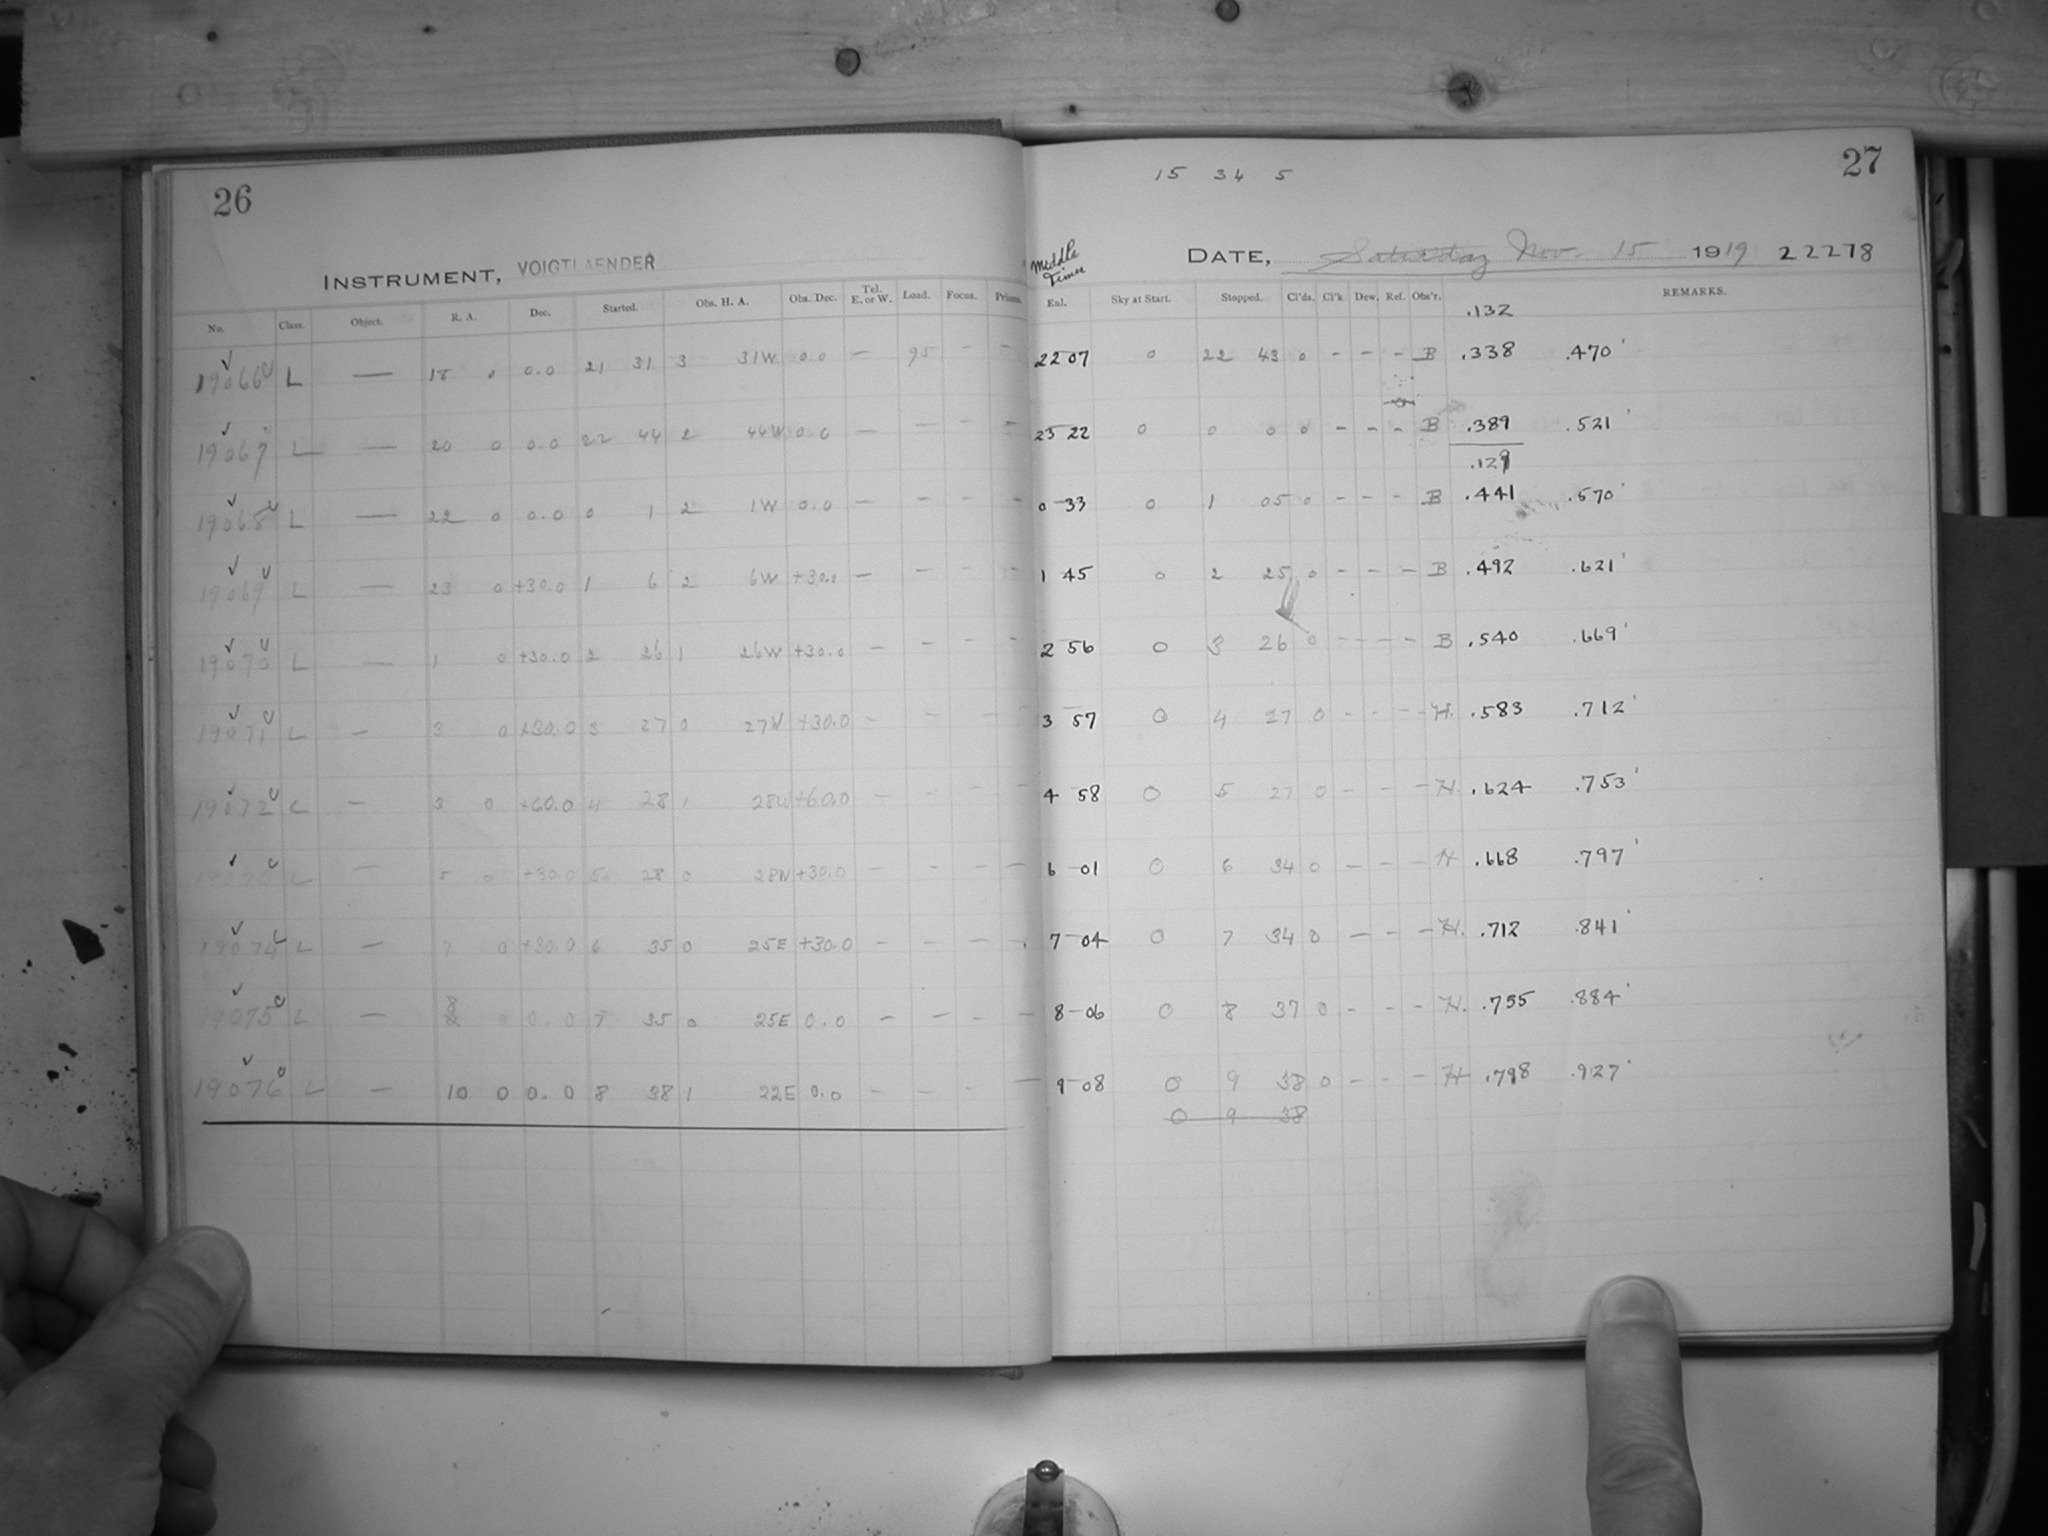 26
INSTRUMENT, VOIGTLAENDER
No. Class. Object. R. A. Dec. Started. Obs. H. A. Obs. Dec. Tel. E. or W. Load. Focus. Prisms.
19066 L — 18 0 0.0 21 31 3 31W 0.0 — 95 - -
19067 L — 20 0 0.0 22 44 2 44W 0.0 — - - -
19068 L — 22 0 0.0 0 1 2 1W 0.0 — - - -
19069 L — 23 0 +30.0 1 6 2 6W +30.0 — - - -
19070 L — 1 0 +30.0 2 26 1 26W +30.0 — - - -
19071 L — 3 0 +30.0 3 27 0 27W +30.0 - - -
19072 L — 3 0 +60.0 4 28 1 28W +60.0 - - - -
19073 L — 5 0 +30.0 5 28 0 28W +30.0 - - - -
19074 L — 7 0 +30.0 6 35 0 25E +30.0 - - - -
19075 L — 8 0 0.0 7 35 0 25E 0.0 - - - -
19076 L — 10 0 0.0 8 38 1 22E 0.0 - - -
27
15 34 5
Middle Time
DATE, Saturday Nov. 15 1919 22278
Enl. Sky at Start. Stopped. Cl'ds. Cl'k Dew. Ref. Obs'r. REMARKS.
.132
22 07 0 22 43 0 - - - B .338 .470'
23 22 0 0 0 0 - - - B .389 .521'
.129
0 33 0 1 05 0 - - - B .441 .570'
1 45 0 2 25 0 - - - B .492 .621'
2 56 0 3 26 0 - - - - B .540 .669'
3 57 0 4 27 0 - - - H. .583 .712'
4 58 0 5 27 0 - - - H. .624 .753'
6 01 0 6 34 0 - - - H .668 .797'
7 04 0 7 34 0 - - - H. .712 .841'
8 06 0 8 37 0 - - - H. .755 .884'
9 08 0 9 38 0 - - - H .798 .927'
0 9 38